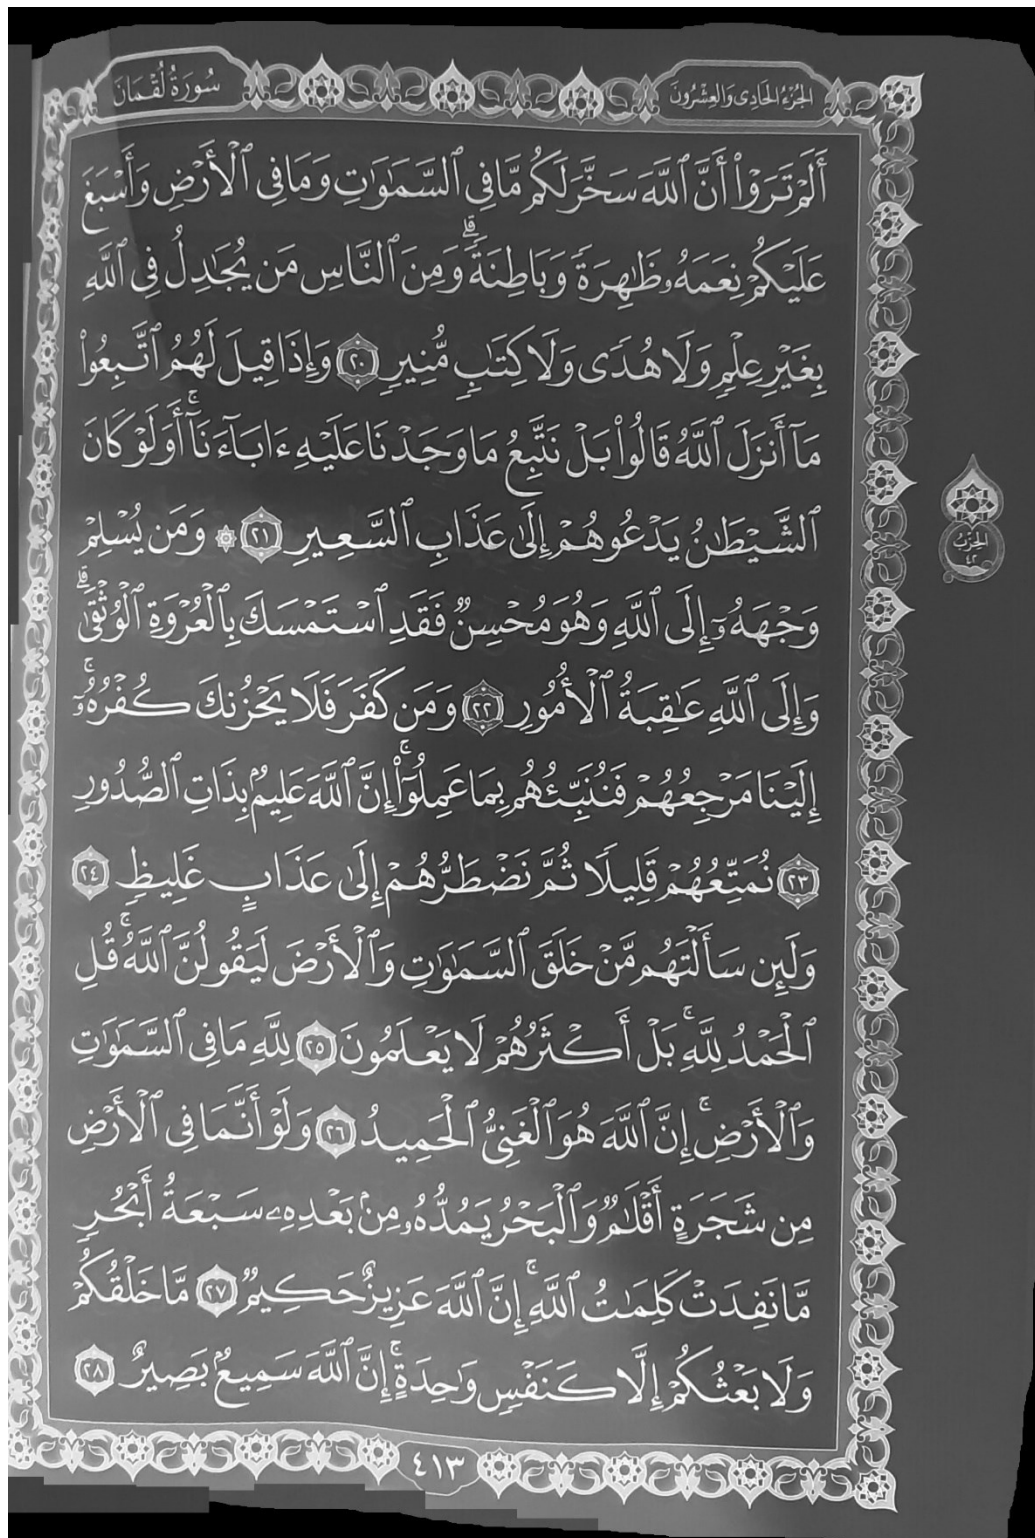 الجُزْءُ الحَادِى وَالعِشْرُونَ
سُورَةُ لُقْمَانَ
أَلَمْ تَرَوْا۟ أَنَّ ٱللَّهَ سَخَّرَ لَكُم مَّا فِى ٱلسَّمَـٰوَٰتِ وَمَا فِى ٱلْأَرْضِ وَأَسْبَغَ
عَلَيْكُمْ نِعَمَهُۥ ظَـٰهِرَةً وَبَاطِنَةً ۗ وَمِنَ ٱلنَّاسِ مَن يُجَـٰدِلُ فِى ٱللَّهِ
بِغَيْرِ عِلْمٍ وَلَا هُدًى وَلَا كِتَـٰبٍ مُّنِيرٍ ٢٠ وَإِذَا قِيلَ لَهُمُ ٱتَّبِعُوا۟
مَآ أَنزَلَ ٱللَّهُ قَالُوا۟ بَلْ نَتَّبِعُ مَا وَجَدْنَا عَلَيْهِ ءَابَآءَنَآ ۚ أَوَلَوْ كَانَ
ٱلشَّيْطَـٰنُ يَدْعُوهُمْ إِلَىٰ عَذَابِ ٱلسَّعِيرِ ٢١ ۞ وَمَن يُسْلِمْ
وَجْهَهُۥٓ إِلَى ٱللَّهِ وَهُوَ مُحْسِنٌ فَقَدِ ٱسْتَمْسَكَ بِٱلْعُرْوَةِ ٱلْوُثْقَىٰ ۗ
وَإِلَى ٱللَّهِ عَـٰقِبَةُ ٱلْأُمُورِ ٢٢ وَمَن كَفَرَ فَلَا يَحْزُنكَ كُفْرُهُۥٓ ۚ
إِلَيْنَا مَرْجِعُهُمْ فَنُنَبِّئُهُم بِمَا عَمِلُوٓا۟ ۚ إِنَّ ٱللَّهَ عَلِيمٌۢ بِذَاتِ ٱلصُّدُورِ
٢٣ نُمَتِّعُهُمْ قَلِيلًا ثُمَّ نَضْطَرُّهُمْ إِلَىٰ عَذَابٍ غَلِيظٍ ٢٤
وَلَئِن سَأَلْتَهُم مَّنْ خَلَقَ ٱلسَّمَـٰوَٰتِ وَٱلْأَرْضَ لَيَقُولُنَّ ٱللَّهُ ۚ قُلِ
ٱلْحَمْدُ لِلَّهِ ۚ بَلْ أَكْثَرُهُمْ لَا يَعْلَمُونَ ٢٥ لِلَّهِ مَا فِى ٱلسَّمَـٰوَٰتِ
وَٱلْأَرْضِ ۚ إِنَّ ٱللَّهَ هُوَ ٱلْغَنِىُّ ٱلْحَمِيدُ ٢٦ وَلَوْ أَنَّمَا فِى ٱلْأَرْضِ
مِن شَجَرَةٍ أَقْلَـٰمٌ وَٱلْبَحْرُ يَمُدُّهُۥ مِنۢ بَعْدِهِۦ سَبْعَةُ أَبْحُرٍ
مَّا نَفِدَتْ كَلِمَـٰتُ ٱللَّهِ ۗ إِنَّ ٱللَّهَ عَزِيزٌ حَكِيمٌ ٢٧ مَّا خَلْقُكُمْ
وَلَا بَعْثُكُمْ إِلَّا كَنَفْسٍ وَٰحِدَةٍ ۗ إِنَّ ٱللَّهَ سَمِيعٌۢ بَصِيرٌ ٢٨
الحِزْبُ
٤٢
٤١٣